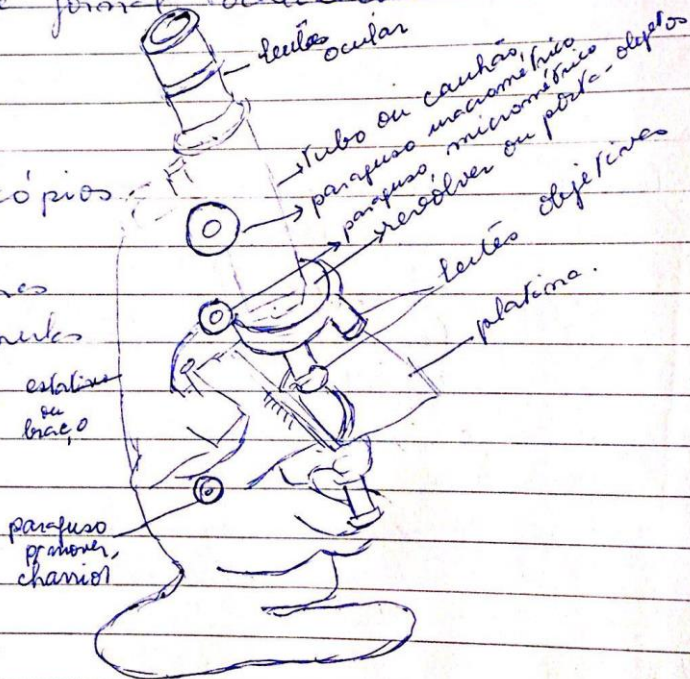 e formar
lentes ocular
tubo ou canhão
parafuso macrométrico
parafuso micrométrico
revólver ou porta-objetos
ópios
lentes objetivas
platina.
estativa
ou
braço
parafuso
p/ mover,
charriot